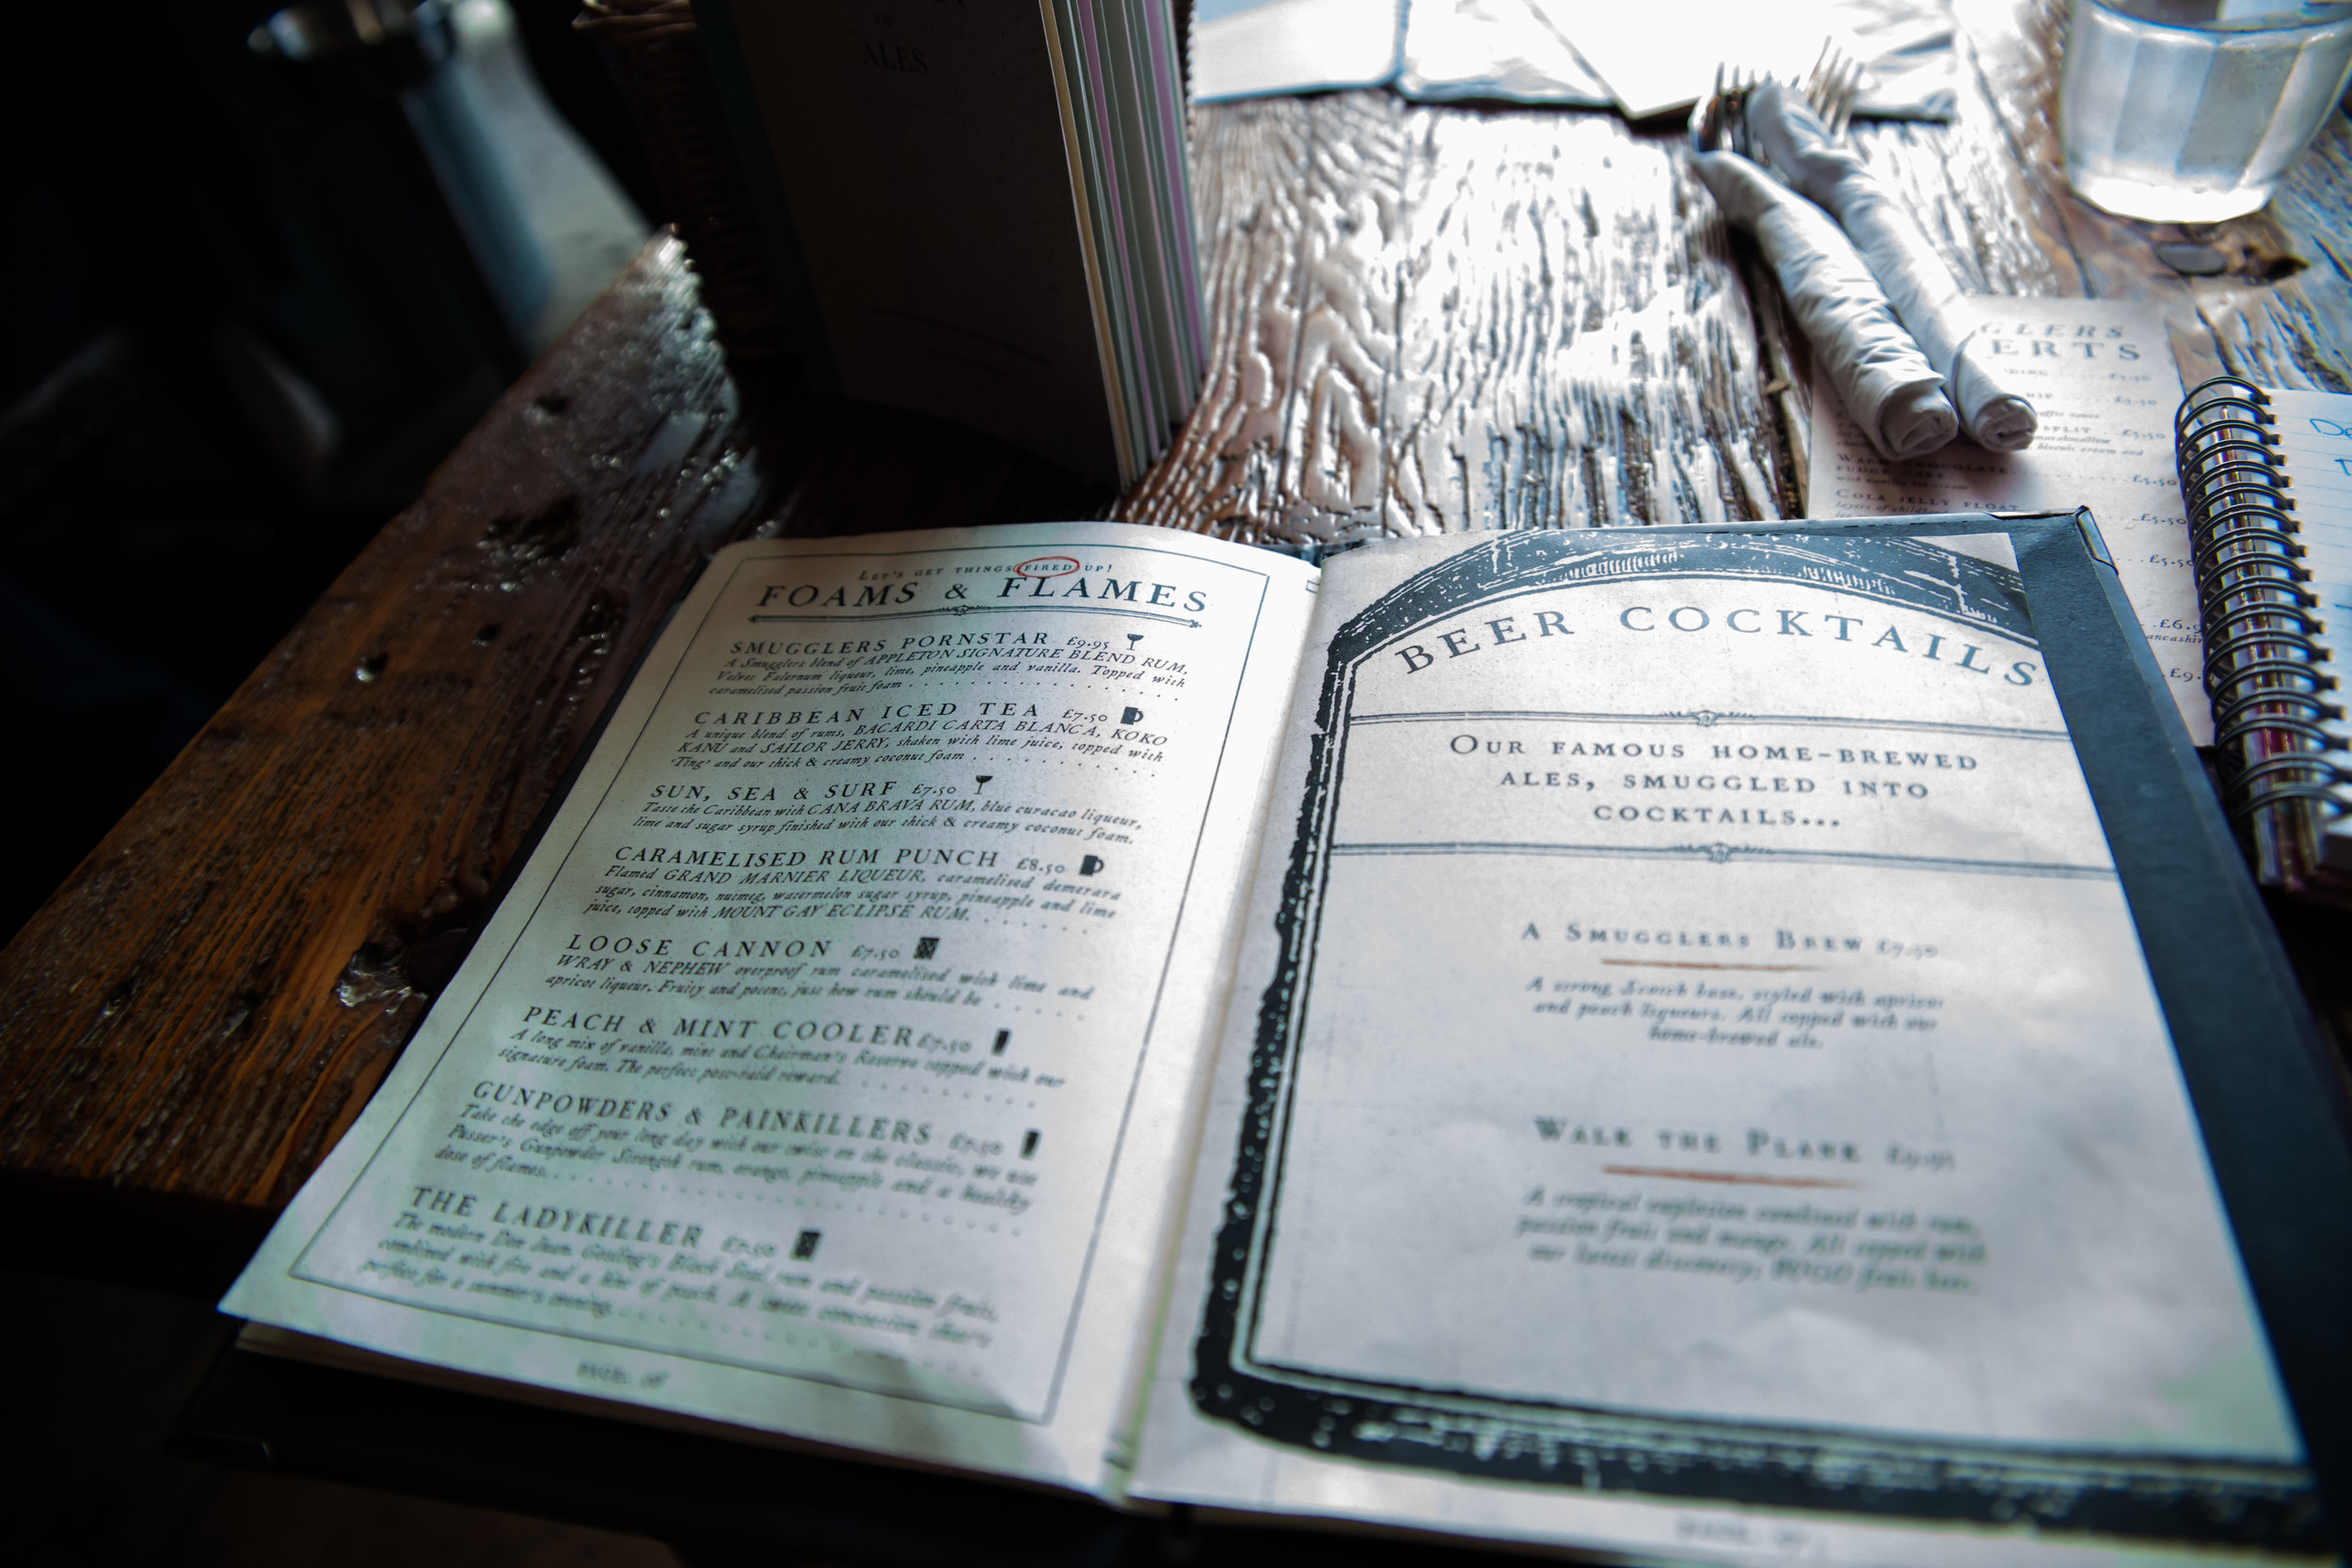 OF
ALES
GLERS
ERTS
SPLIT
COLA JELLY FLOAT
£5.50
LET'S GET THINGS FIRED UP!
FOAMS & FLAMES
SMUGGLERS PORNSTAR £9.95
A Smugglers blend of APPLETON SIGNATURE BLEND RUM,
Velvet Falernum liqueur, lime, pineapple and vanilla. Topped with
caramelised passion fruit foam
CARIBBEAN ICED TEA £7.50
A unique blend of rums, BACARDI CARTA BLANCA, KOKO
KANU and SAILOR JERRY, shaken with lime juice, topped with
'Ting' and our thick & creamy coconut foam
SUN, SEA & SURF £7.50
Taste the Caribbean with CANA BRAVA RUM, blue curacao liqueur,
lime and sugar syrup finished with our thick & creamy coconut foam.
CARAMELISED RUM PUNCH £8.50
Flamed GRAND MARNIER LIQUEUR, caramelised demerara
sugar, cinnamon, nutmeg, watermelon sugar syrup, pineapple and lime
juice, topped with MOUNT GAY ECLIPSE RUM.
LOOSE CANNON £7.50
WRAY & NEPHEW overproof rum caramelised with lime and
apricot liqueur. Fruity and potent, just how rum should be
PEACH & MINT COOLER £7.50
A long mix of vanilla, mint and Chairman's Reserve topped with our
signature foam. The perfect post-raid reward.
GUNPOWDERS & PAINKILLERS £7.50
Take the edge off your long day with our twist on the classic, we use
Pusser's Gunpowder Strength rum, orange, pineapple and a healthy
dose of flames.
THE LADYKILLER £7.50
The modern Don Juan. Gosling's Black Seal rum and passion fruit,
combined with fire and a kiss of peach. A sweet concoction that's
perfect for a summer's evening.
BEER COCKTAILS
OUR FAMOUS HOME-BREWED
ALES, SMUGGLED INTO
COCKTAILS...
A SMUGGLERS BREW £7.50
A strong Scotch base, styled with apricot
and peach liqueurs. All topped with our
home-brewed ale.
WALK THE PLANK £9.95
A tropical explosion combined with rum,
passion fruit and mango. All topped with
our latest discovery,